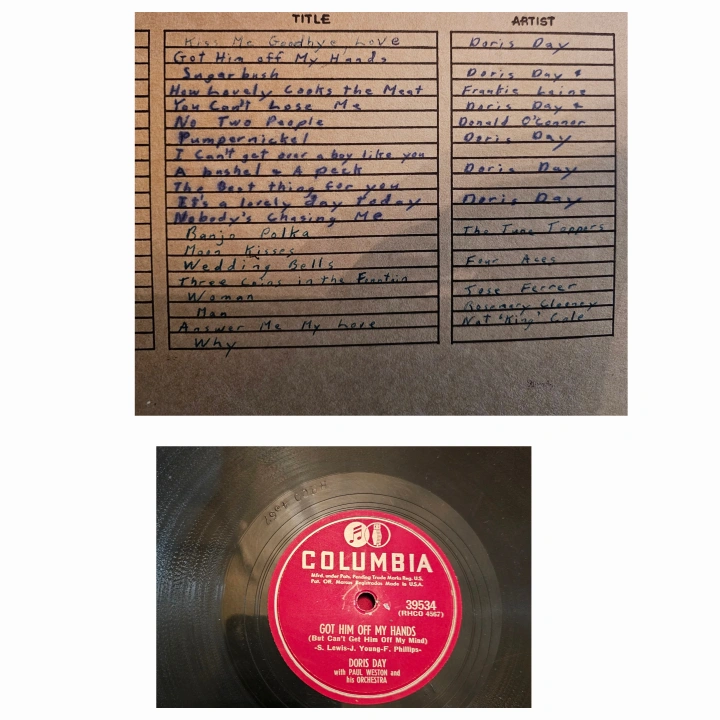 TITLE ARTIST
Kiss Me Goodbye, Love Doris Day
Got Him off My Hands
Sugarbush Doris Day &
How Lovely Cooks the Meat Frankie Laine
You Can't Lose Me Doris Day &
No Two People Donald O'Connor
Pumpernickel Doris Day
I Can't get over a boy like you
A bushel & A peck Doris Day
The Best thing for you
It's a lovely day today Doris Day
Nobody's Chasing Me
Banjo Polka The Tune Toppers
Moon Kisses
Wedding Bells Four Aces
Three Coins in the Fountain
Woman Jose Ferrer
Man Rosemary Clooney
Answer Me My Love Nat 'King' Cole
Why
COLUMBIA
Mfrd. under Pats. Pending Trade Marks Reg. U.S.
Pat. Off. Marcas Registradas Made in U.S.A.
39534
(RHCO 4567)
GOT HIM OFF MY HANDS
(But Can't Get Him Off My Mind)
-S. Lewis-J. Young-F. Phillips-
DORIS DAY
with PAUL WESTON and
his ORCHESTRA